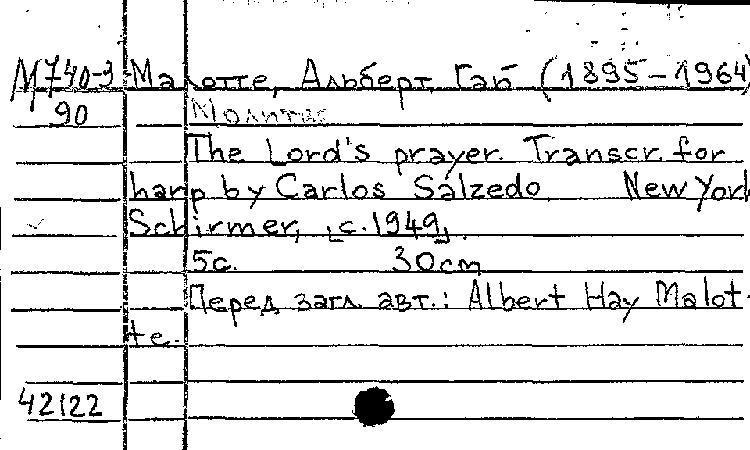 М740-3 Малотте, Альберт Гай (1895-1964)
90 Молитва
The Lord's prayer. Transcr. for
harp by Carlos Salzedo New York
Schirmer, [c.1949].
5с. 30cm
Перед загл. авт.: Albert Hay Malot-
te.
42122